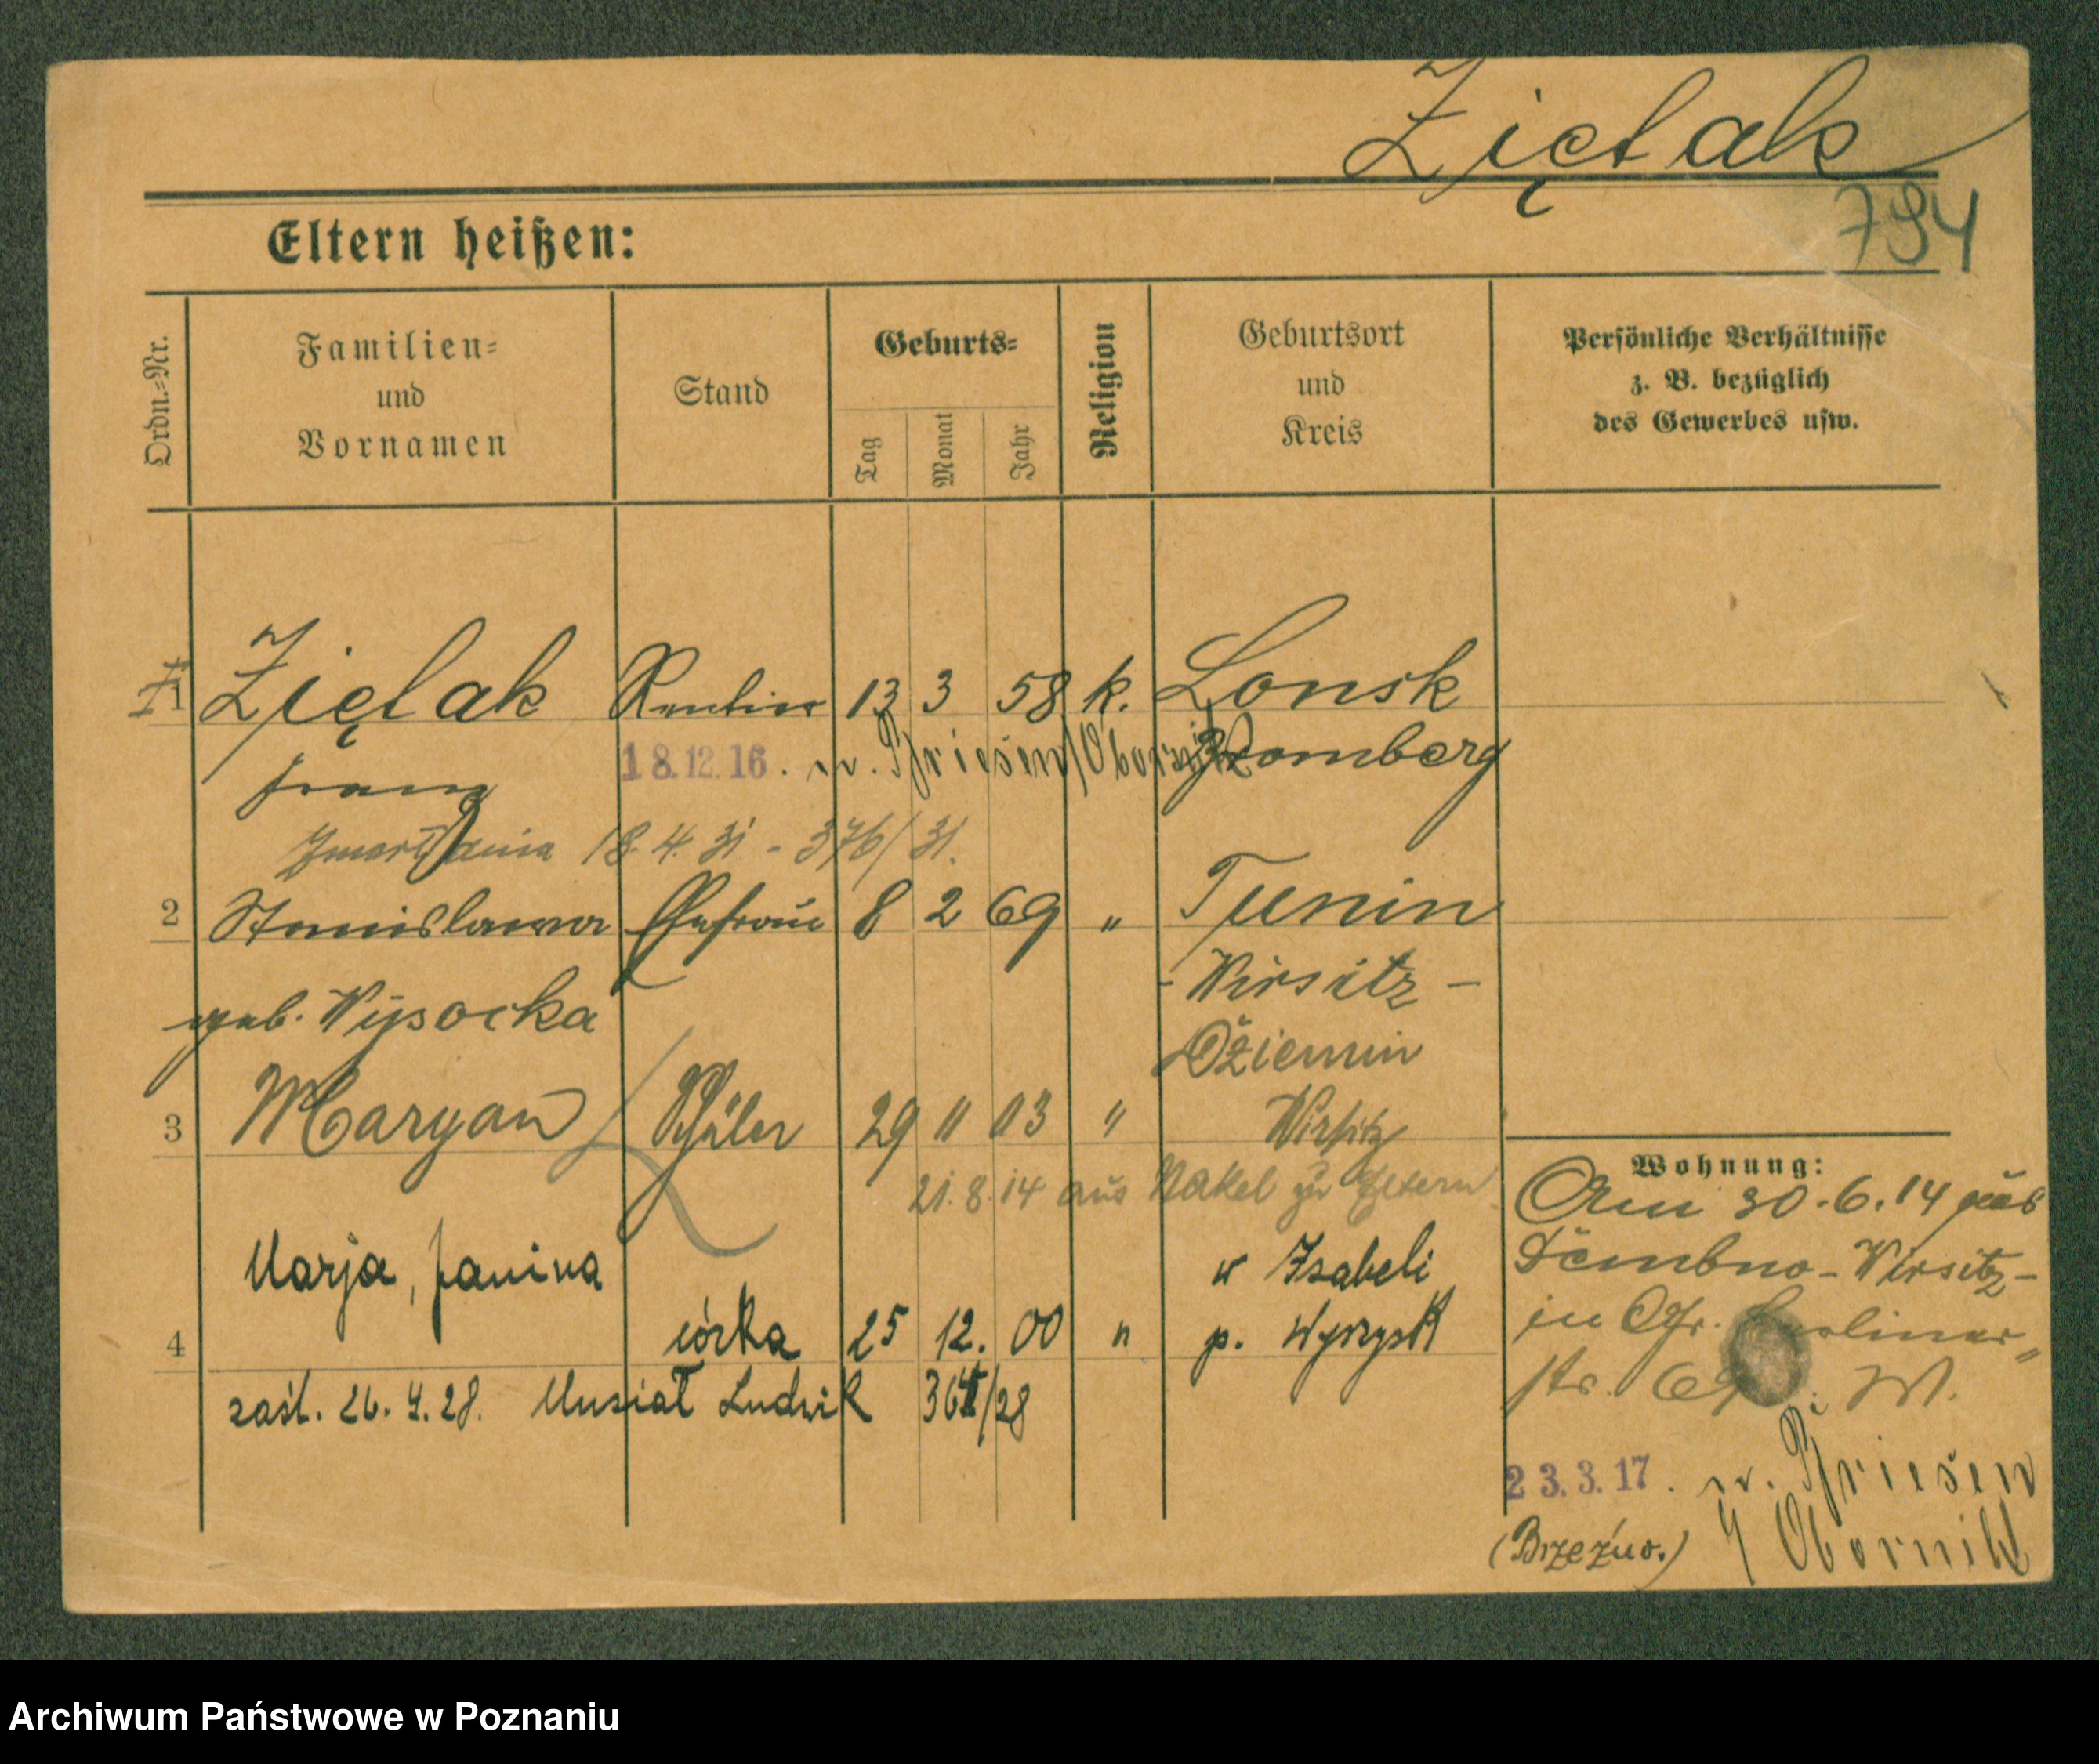 Ziętak
794
Eltern heißen:
Ordn.-Nr.
Familien-
und
Vornamen
Stand
Geburts-
Tag
Monat
Jahr
Religion
Geburtsort
und
Kreis
Persönliche Verhältnisse
z. B. bezüglich
des Gewerbes usw.
1 Ziętak Rentier 13 3 58 k. Lonsk
Franz 18.12.16. n. Briesen/Obornik Bromberg
18.4.31 - 376/31.
2 Stanislawa Ehefrau 8 2 69 " Tunin
geb. Wysocka - Wirsitz -
Dziemin
3 Maryan Schüler 29 11 03 " Wirsitz
21.8.14 aus Nakel zu Eltern
Marja, Janina w Izabeli
4 córka 25 12. 00 " p. Wyrzysk
zaśl. 26.4.28. Musiał Ludwik /28
Wohnung:
Am 30.6.14 aus
Dembno - Wirsitz -
in Berliner
str. 69 W.
23.3.17. n. Briesen
(Brzeźno.) / Obornik
Archiwum Państwowe w Poznaniu